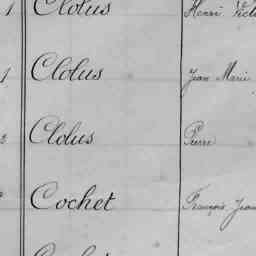 1 Clolus Henri Victo
1 Clolus Jean Marie
3 Clolus Pierre
Cochet François Jean